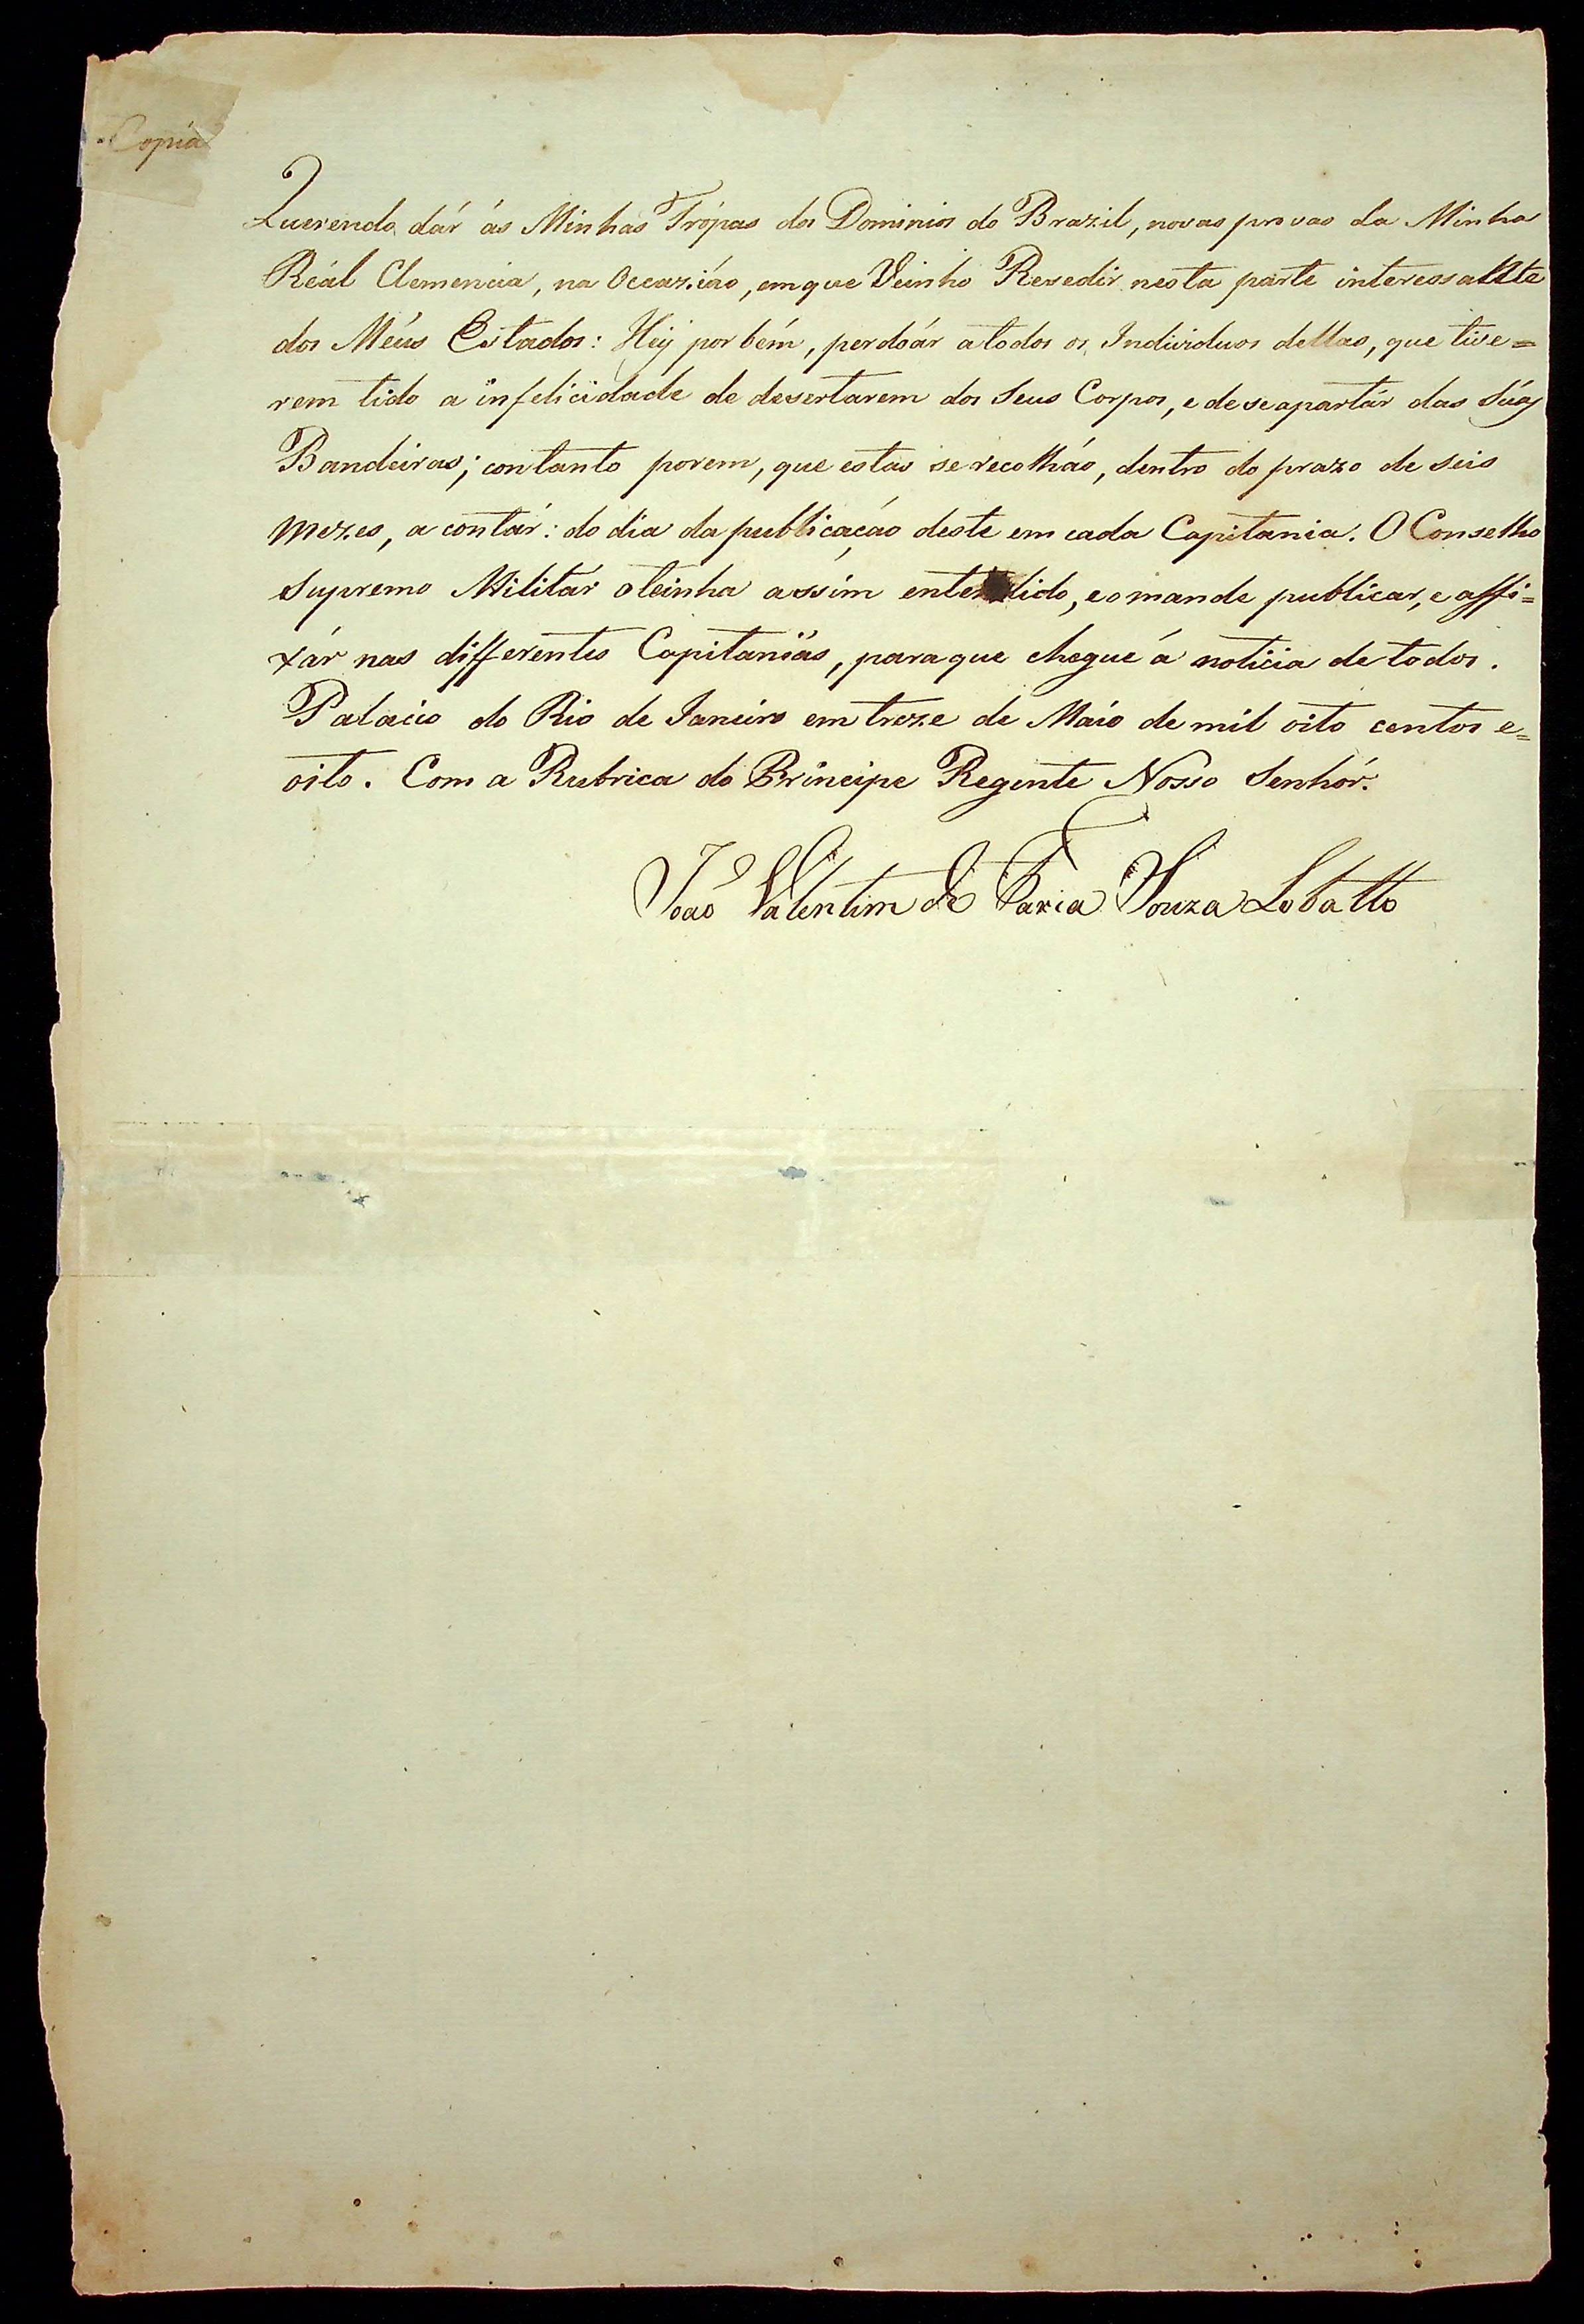 Copia
Querendo dár ás Minhas Trópas dos Dominios do Brazil, novas provas da Minha
Reál Clemencia, na Occazião, em que Veinho Rezedir nesta parte interessante
dos Méus Estados: Hey por bém, perdoár a todos os Individuos dellas, que tive=
rem tido a infelicidade de desertarem dos Seus Corpos, e de se apartár das Súas
Bandeiras; contanto porem, que estas se recolháo, dentro do prazo de seis
mezes, a contár: do dia da publicação deste em cada Capitania. O Conselho
Supremo Militár o teinha assim entendido, e o mande publicar, e affi=
xár nas differentes Capitaniás, para que chegue á noticia de todos.
Palacio do Rio de Janeiro em treze de Máio de mil oito centos e=
oito. Com a Rubrica do Principe Regente Nosso Senhór.
João Valentim de Faria Souza Lobatto